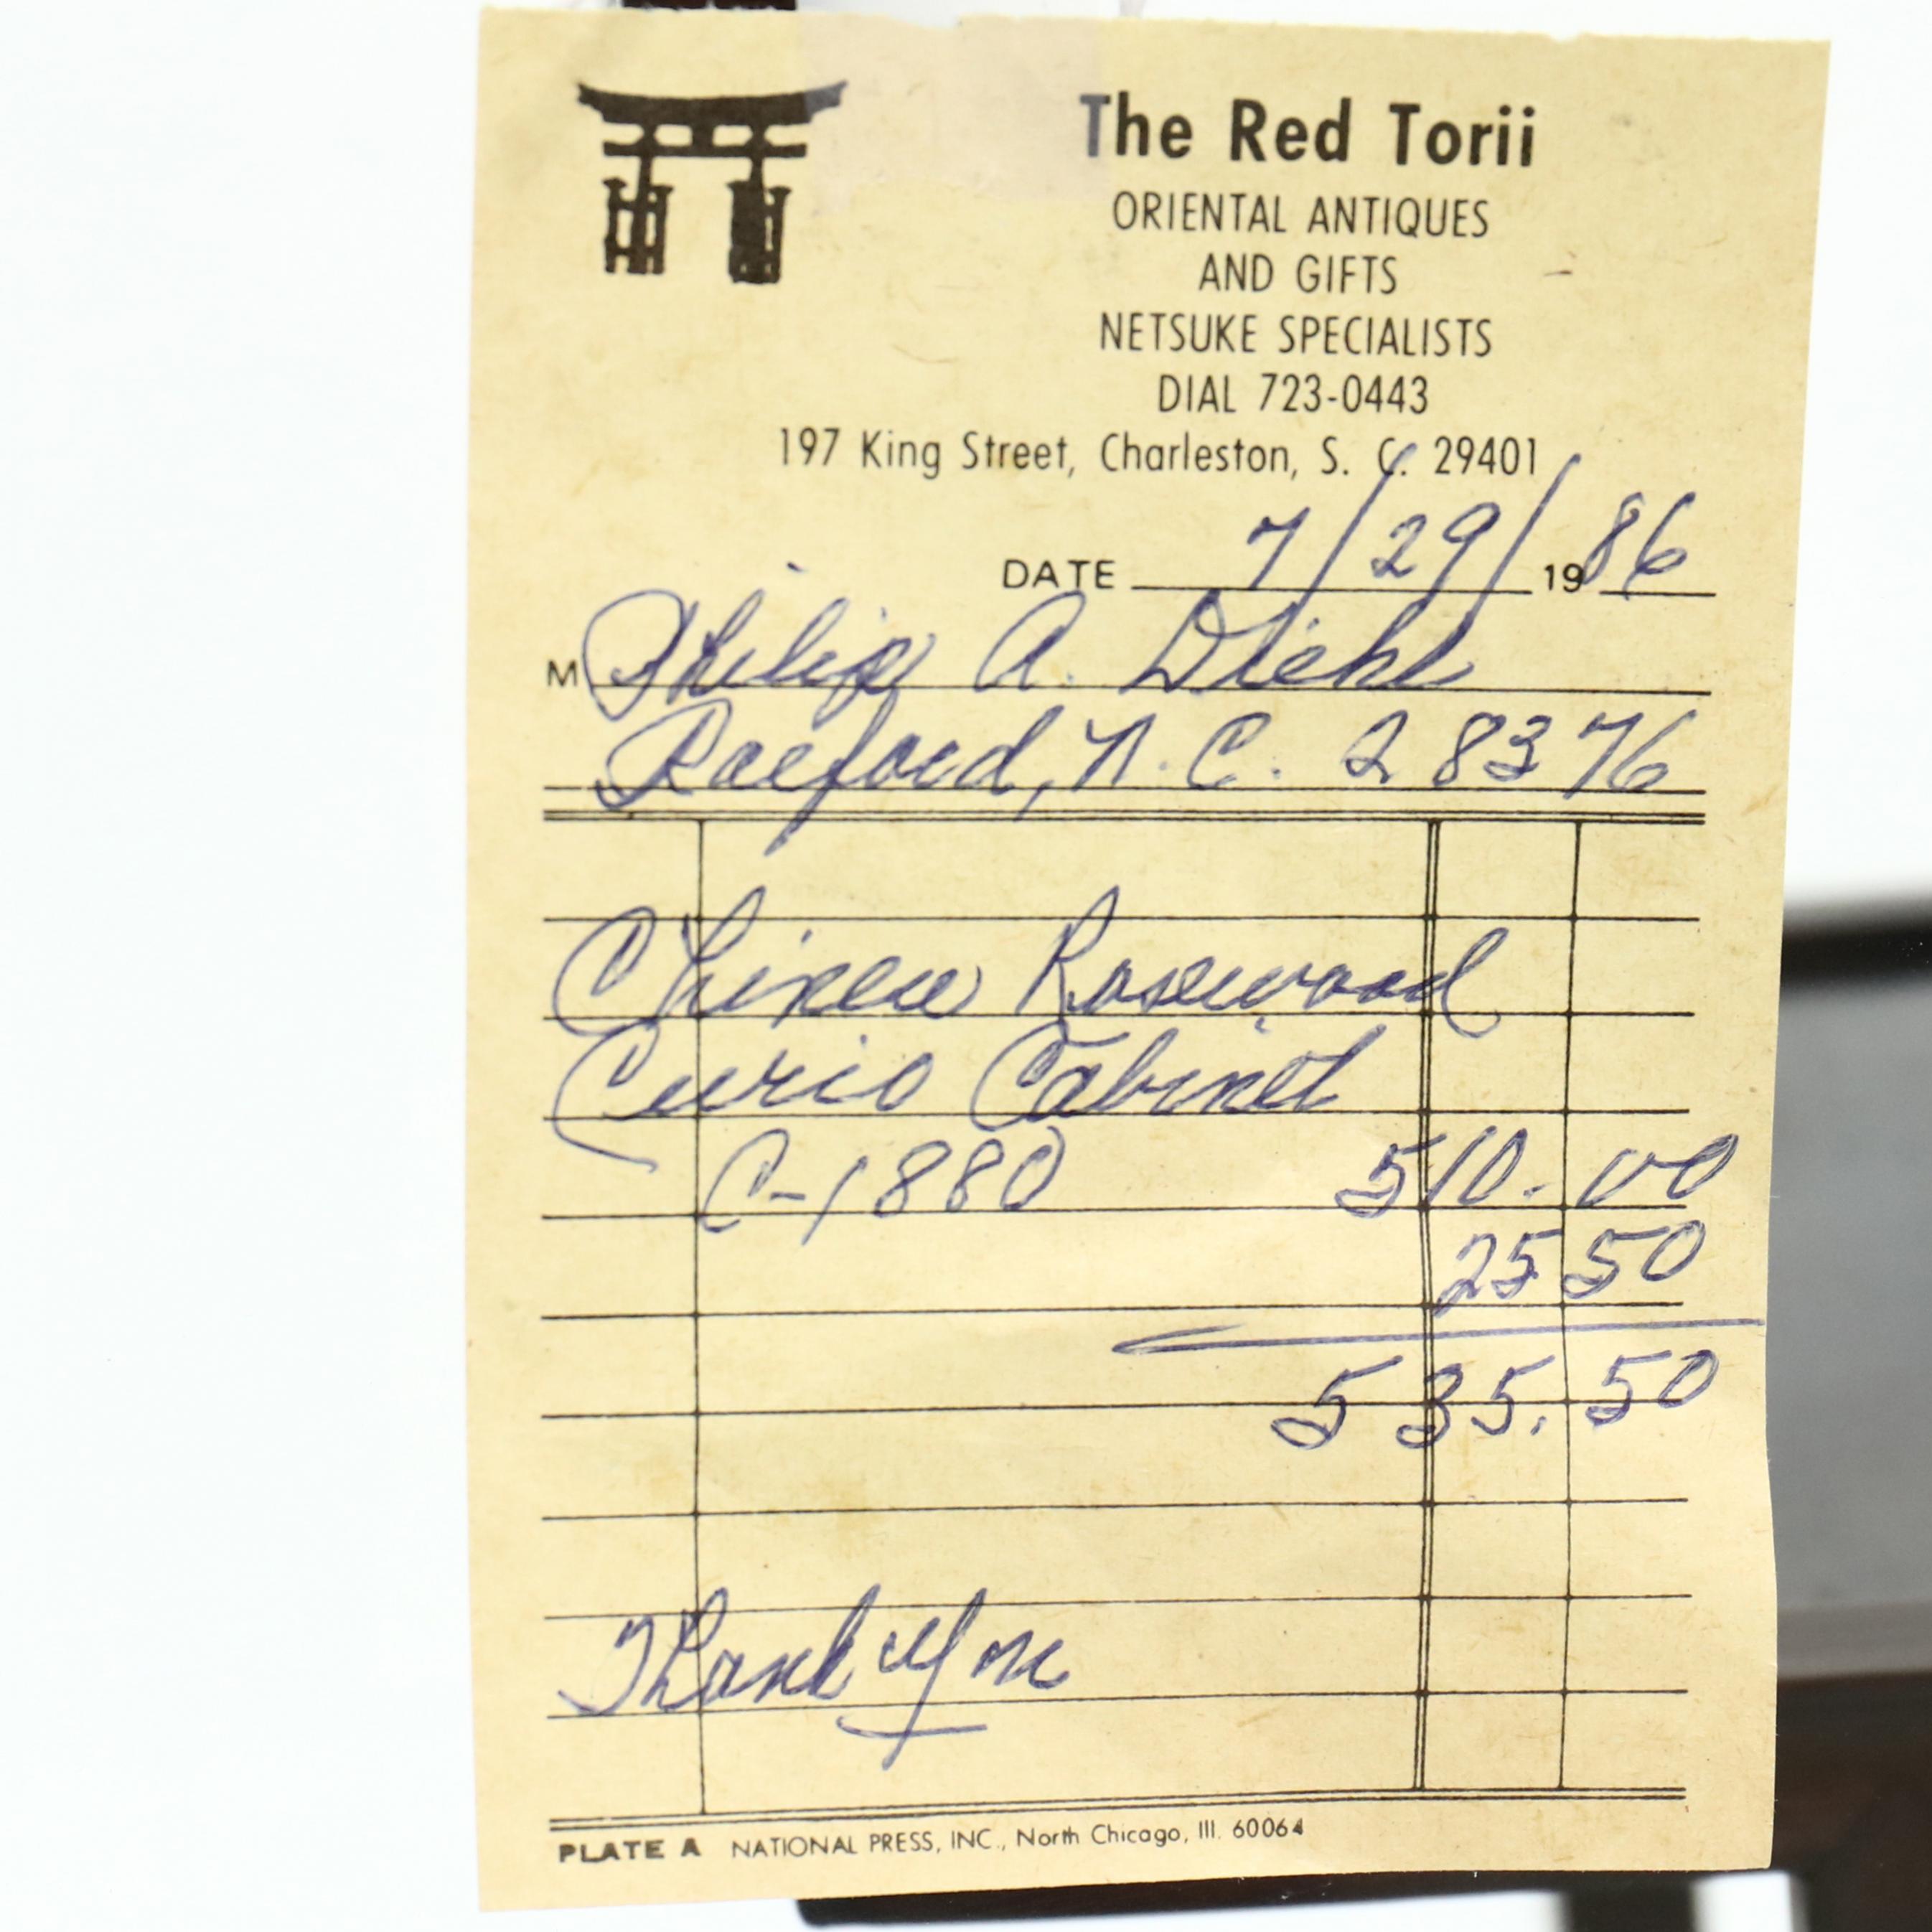 The Red Torii
ORIENTAL ANTIQUES
AND GIFTS
NETSUKE SPECIALISTS
DIAL 723-0443
197 King Street, Charleston, S. C. 29401
DATE 7/29/ 1986
M Philip A. Diehl
Raeford, N.C. 28376
Chinese Rosewood
Curio Cabinet
C-1880 510.00
25 50
535.50
Thank You
PLATE A NATIONAL PRESS, INC., North Chicago, Ill. 60064